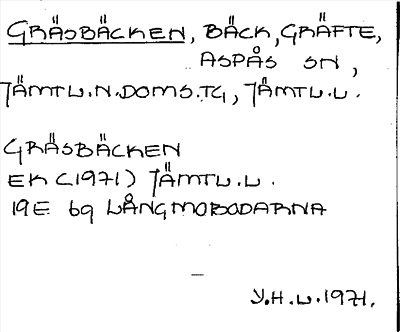 GRÄSBÄCKEN, BÄCK, GRÄFTE,
ASPÅS SN,
JÄMTL.N.DOMS.TG, JÄMTL.L.
GRÄSBÄCKEN
EK (1971) JÄMTL.L.
19E 6g LÅNGMOBODARNA
Y.H.L.1971.